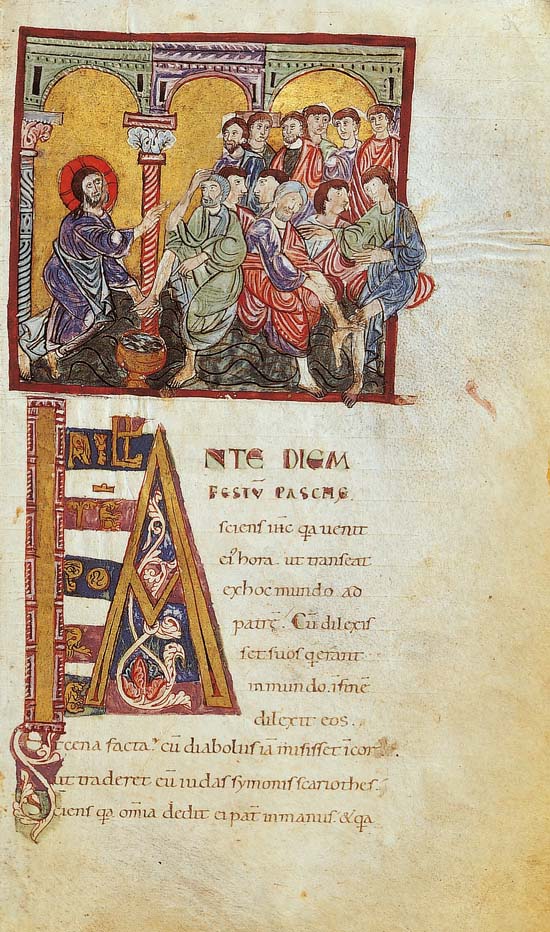 ANTE DIEM
FESTV̄ PASCHE.
sciens ih̄c qa uenit
ei᾽ hora. ut transeat
ex hoc mundo ad
patrē. Cū dilexis
set suos q erant
in mundo. ī finē
dilexit eos.
cena facta. cū diabolus iā misisset ī cor.
ut traderet eū iudas symonis scariothes.
Sciens qa om̄ia dedit ei pat̄ in manus & qa